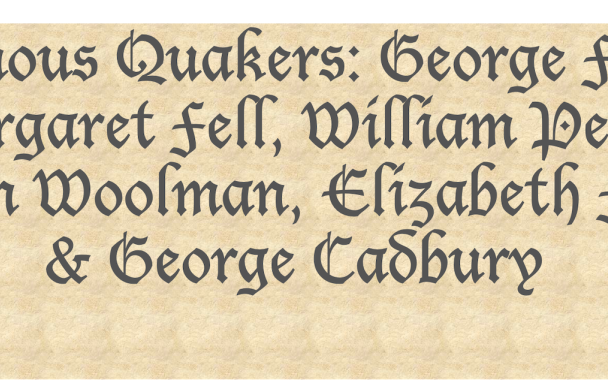 ous Quakers: George F
rgaret Fell, William Pe
n Woolman, Elizabeth
& George Cadbury